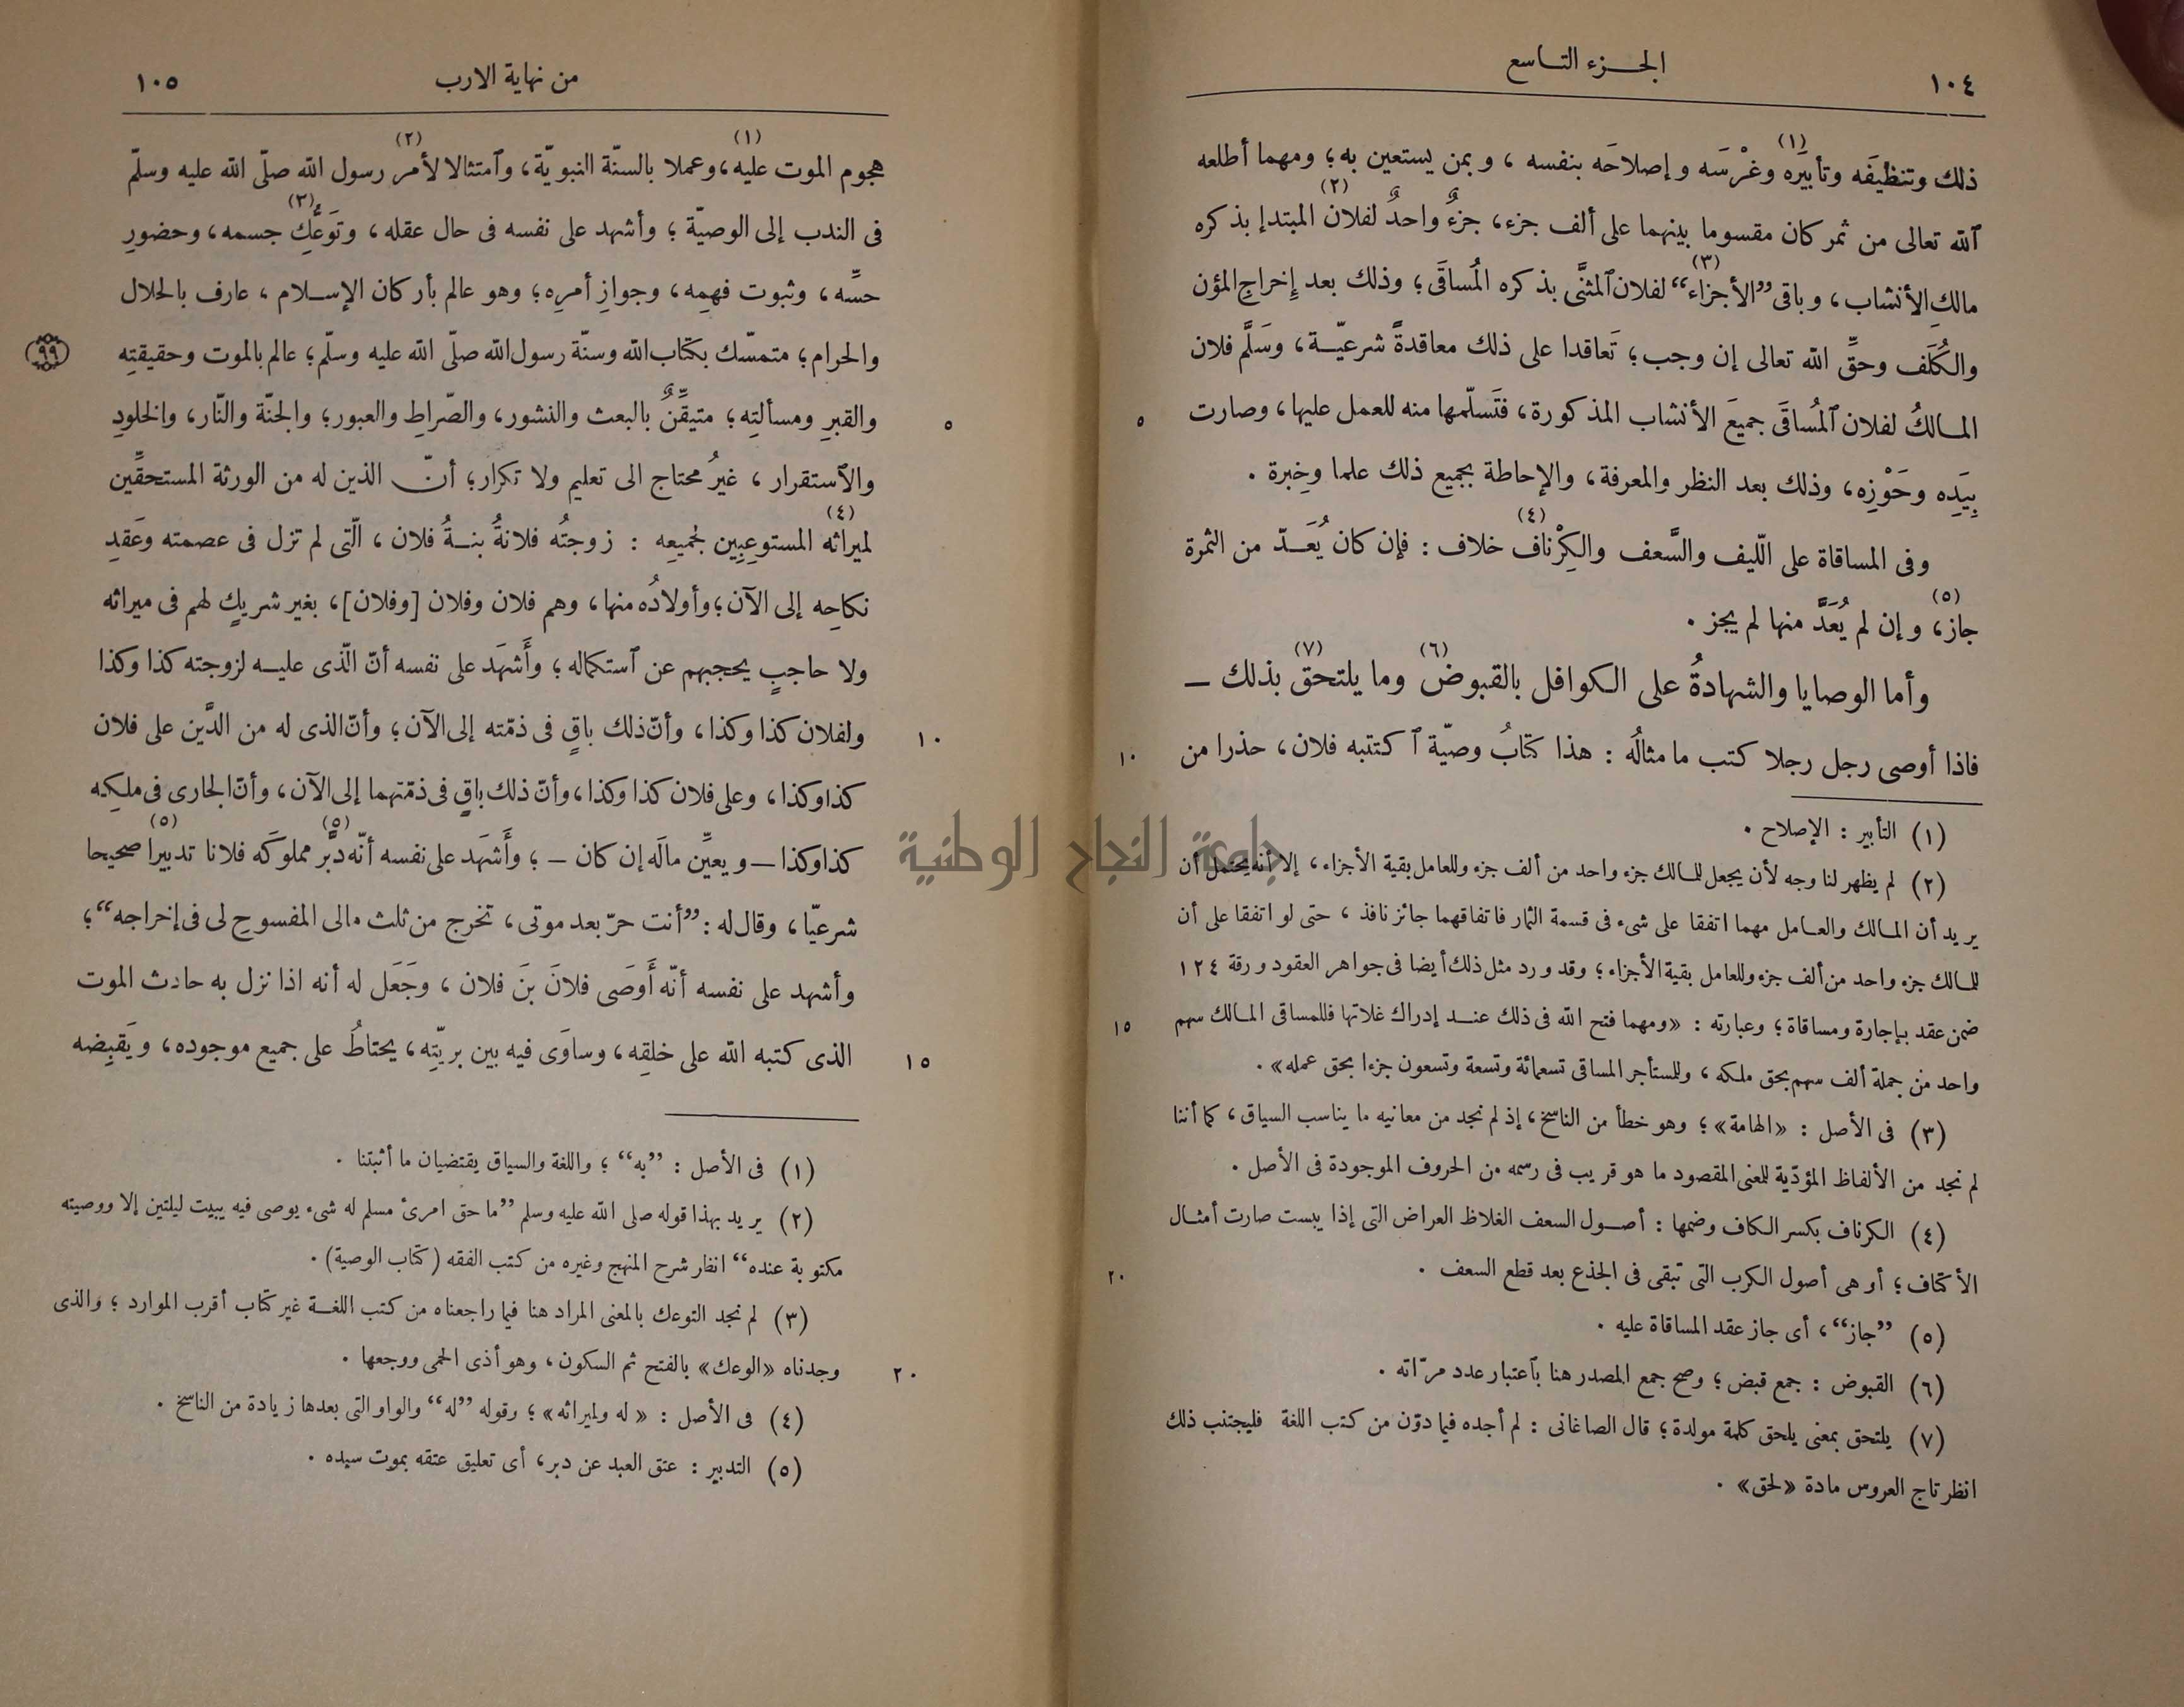 ١٠٤
الجـزء التـاسع
ذلك وتنظيفَه وتأبيَره(١) وغرْسَه وإصلاحَه بنفسه ، وبمن يستعين به؛ ومهما أطلعه
ٱلله تعالى من ثمر كان مقسوما بينهما على ألف جزء، جزءٌ واحدٌ(٢) لفلان المبتدإ بذكره
مالك الأنشاب، وباقى ”الأجزاء“(٣) لفلان ٱلمثنَّى بذكره المُساقَى؛ وذلك بعد إخراج المؤن
والكُلَف وحقِّ الله تعالى إن وجب؛ تَعاقدا على ذلك معاقدةً شرعيّـة، وسَلَّم فلان
المـالكُ لفلان ٱلمُساقَى جميعَ الأنشاب المذكورة، فتَسلّمها منه للعمل عليها، وصارت
٥
بِيَدِه وحَوْزِه، وذلك بعد النظر والمعرفة، والإحاطة بجميع ذلك علما وخِبرة .
وفى المساقاة على اللّيف والسَّعف والكِرْناف(٤) خلاف : فإن كان يُعَـدّ من الثمرة
جاز(٥)، وإن لم يُعَدَّ منها لم يجز .
وأما الوصايا والشهادةُ على الكوافل بالقبوض(٦) وما يلتحق(٧) بذلك —
فاذا أوصى رجل رجلا كتب ما مثالُه : هذا كتابُ وصيّة ٱكتتبه فلان، حذرا من
١٠
(١) التأبير : الإصلاح .
(٢) لم يظهر لنا وجه لأن يجعل للمـالك جزء واحد من ألف جزء وللعامل بقية الأجزاء، إلا أنه يحتمل أن
يريد أن المـالك والعـامل مهما اتفقا على شىء فى قسمة الثمار فاتفاقهما جائز نافذ ، حتى لو اتفقا على أن
للمـالك جزء واحد من ألف جزء وللعامل بقية الأجزاء؛ وقد ورد مثل ذلك أيضا فى جواهر العقود ورقة ١٢٤
ضمن عقد بإجارة ومساقاة؛ وعبارته : «ومهما فتح الله فى ذلك عنـد إدراك غلاتها فللمساقى المـالك سهم
١٥
واحد من جملة ألف سهم بحق ملكه ، وللستأجر المساقى تسعمائة وتسعة وتسعون جزءا بحق عمله» .
(٣) فى الأصل : «الهامة»؛ وهو خطأ من الناسخ، إذ لم نجد من معانيه ما يناسب السياق، كما أننا
لم نجد من الألفاظ المؤدّية للعنى المقصود ما هو قريب فى رسمه من الحروف الموجودة فى الأصل .
(٤) الكرناف بكسر الكاف وضمها : أصـول السعف الغلاظ العراض التى إذا يبست صارت أمثـال
الأكتاف؛ أو هى أصول الكرب التى تبقى فى الجذع بعد قطع السعف .
٢٠
(٥) ”جاز“، أى جاز عقد المساقاة عليه .
(٦) القبوض : جمع قبض؛ وصح جمع المصدر هنا بٱعتبار عدد مرّاته .
(٧) يلتحق بمعنى يلحق كلمة مولدة؛ قال الصاغانى : لم أجده فيما دوّن من كتب اللغة فليجتنب ذلك
انظر تاج العروس مادة «لحق» .
من نهاية الارب
١٠٥
هجوم الموت عليه(١)، وعملا بالسنّة النبويّة، وٱمتثالا لأمر(٢) رسول الله صلّى الله عليه وسلّم
فى الندب إلى الوصيّة؛ وأشهد على نفسه فى حال عقله، وتَوَعُّكِ(٣) جسمه، وحضورِ
حسِّه، وثبوت فهمِه، وجوازِ أمرِه؛ وهو عالم بأركان الإسـلام، عارف بالحلال
والحرام؛ متمسّك بكتاب الله وسنّة رسول الله صلّى الله عليه وسلّم؛ عالم بالموت وحقيقتِه
٩٩
والقبرِ ومسألتِه؛ متيقِّنٌ بالبعث والنشور، والصّراطِ والعبور؛ والجنّة والنّار، والخلودِ
٥
والٱستقرار، غيرُ محتاج الى تعليم ولا تكرار؛ أنّ الذين له من الورثة المستحقِّين
لميراثه(٤) المستوعِبِين لجميعِه : زوجتُه فلانةُ بنـةُ فلان، الّتى لم تزل فى عصمته وعَقدِ
نكاحِه إلى الآن؛ وأولادُه منها، وهم فلان وفلان [وفلان]، بغير شريكٍ لهم فى ميراثه
ولا حاجبٍ يحجبهم عن ٱستكماله؛ وأَشهَد على نفسه أنّ الّذى عليـه لزوجته كذا وكذا
ولفلان كذا وكذا، وأنّ ذلك باقٍ فى ذمّته إلى الآن؛ وأنّ الذى له من الدَّين على فلان
١٠
كذا وكذا، وعلى فلان كذا وكذا، وأنّ ذلك باقٍ فى ذمّتهما إلى الآن، وأنّ الجارى فى ملكِه
كذا وكذا — ويعيِّن مالَه إن كان — ؛ وأَشهَد على نفسه أنّه دَبَّر(٥) مملوكَه فلانا تدبيرا(٥) صحيحا
شرعيّا، وقال له : ”أنت حرّ بعد موتى، تخرج من ثلث مالى المفسوح لى فى إخراجه“؛
وأشهد على نفسه أنّه أَوصَى فلانَ بنَ فلان، وجَعَل له أنه اذا نزل به حادث الموت
الذى كتبه الله على خلقِه، وساوَى فيه بين بريّتِه، يحتاطُ على جميع موجوده، ويَقبِضه
١٥
(١) فى الأصل : ”به“؛ واللغة والسياق يقتضيان ما أثبتنا .
(٢) يريد بهذا قوله صلى الله عليه وسلم ”ما حق امرئ مسلم له شىء يوصى فيه يبيت ليلتين إلا ووصيته
مكتوبة عنده“ انظر شرح المنهج وغيره من كتب الفقه (كتاب الوصية) .
(٣) لم نجد التوعك بالمعنى المراد هنا فيما راجعناه من كتب اللغـة غير كتاب أقرب الموارد؛ والذى
وجدناه «الوعك» بالفتح ثم السكون، وهو أذى الحمى ووجعها .
٢٠
(٤) فى الأصل : «له ولميراثه»؛ وقوله ”له“ والواو التى بعدها زيادة من الناسخ .
(٥) التدبير : عتق العبد عن دبر، أى تعليق عتقه بموت سيده .
جامعة النجاح الوطنية